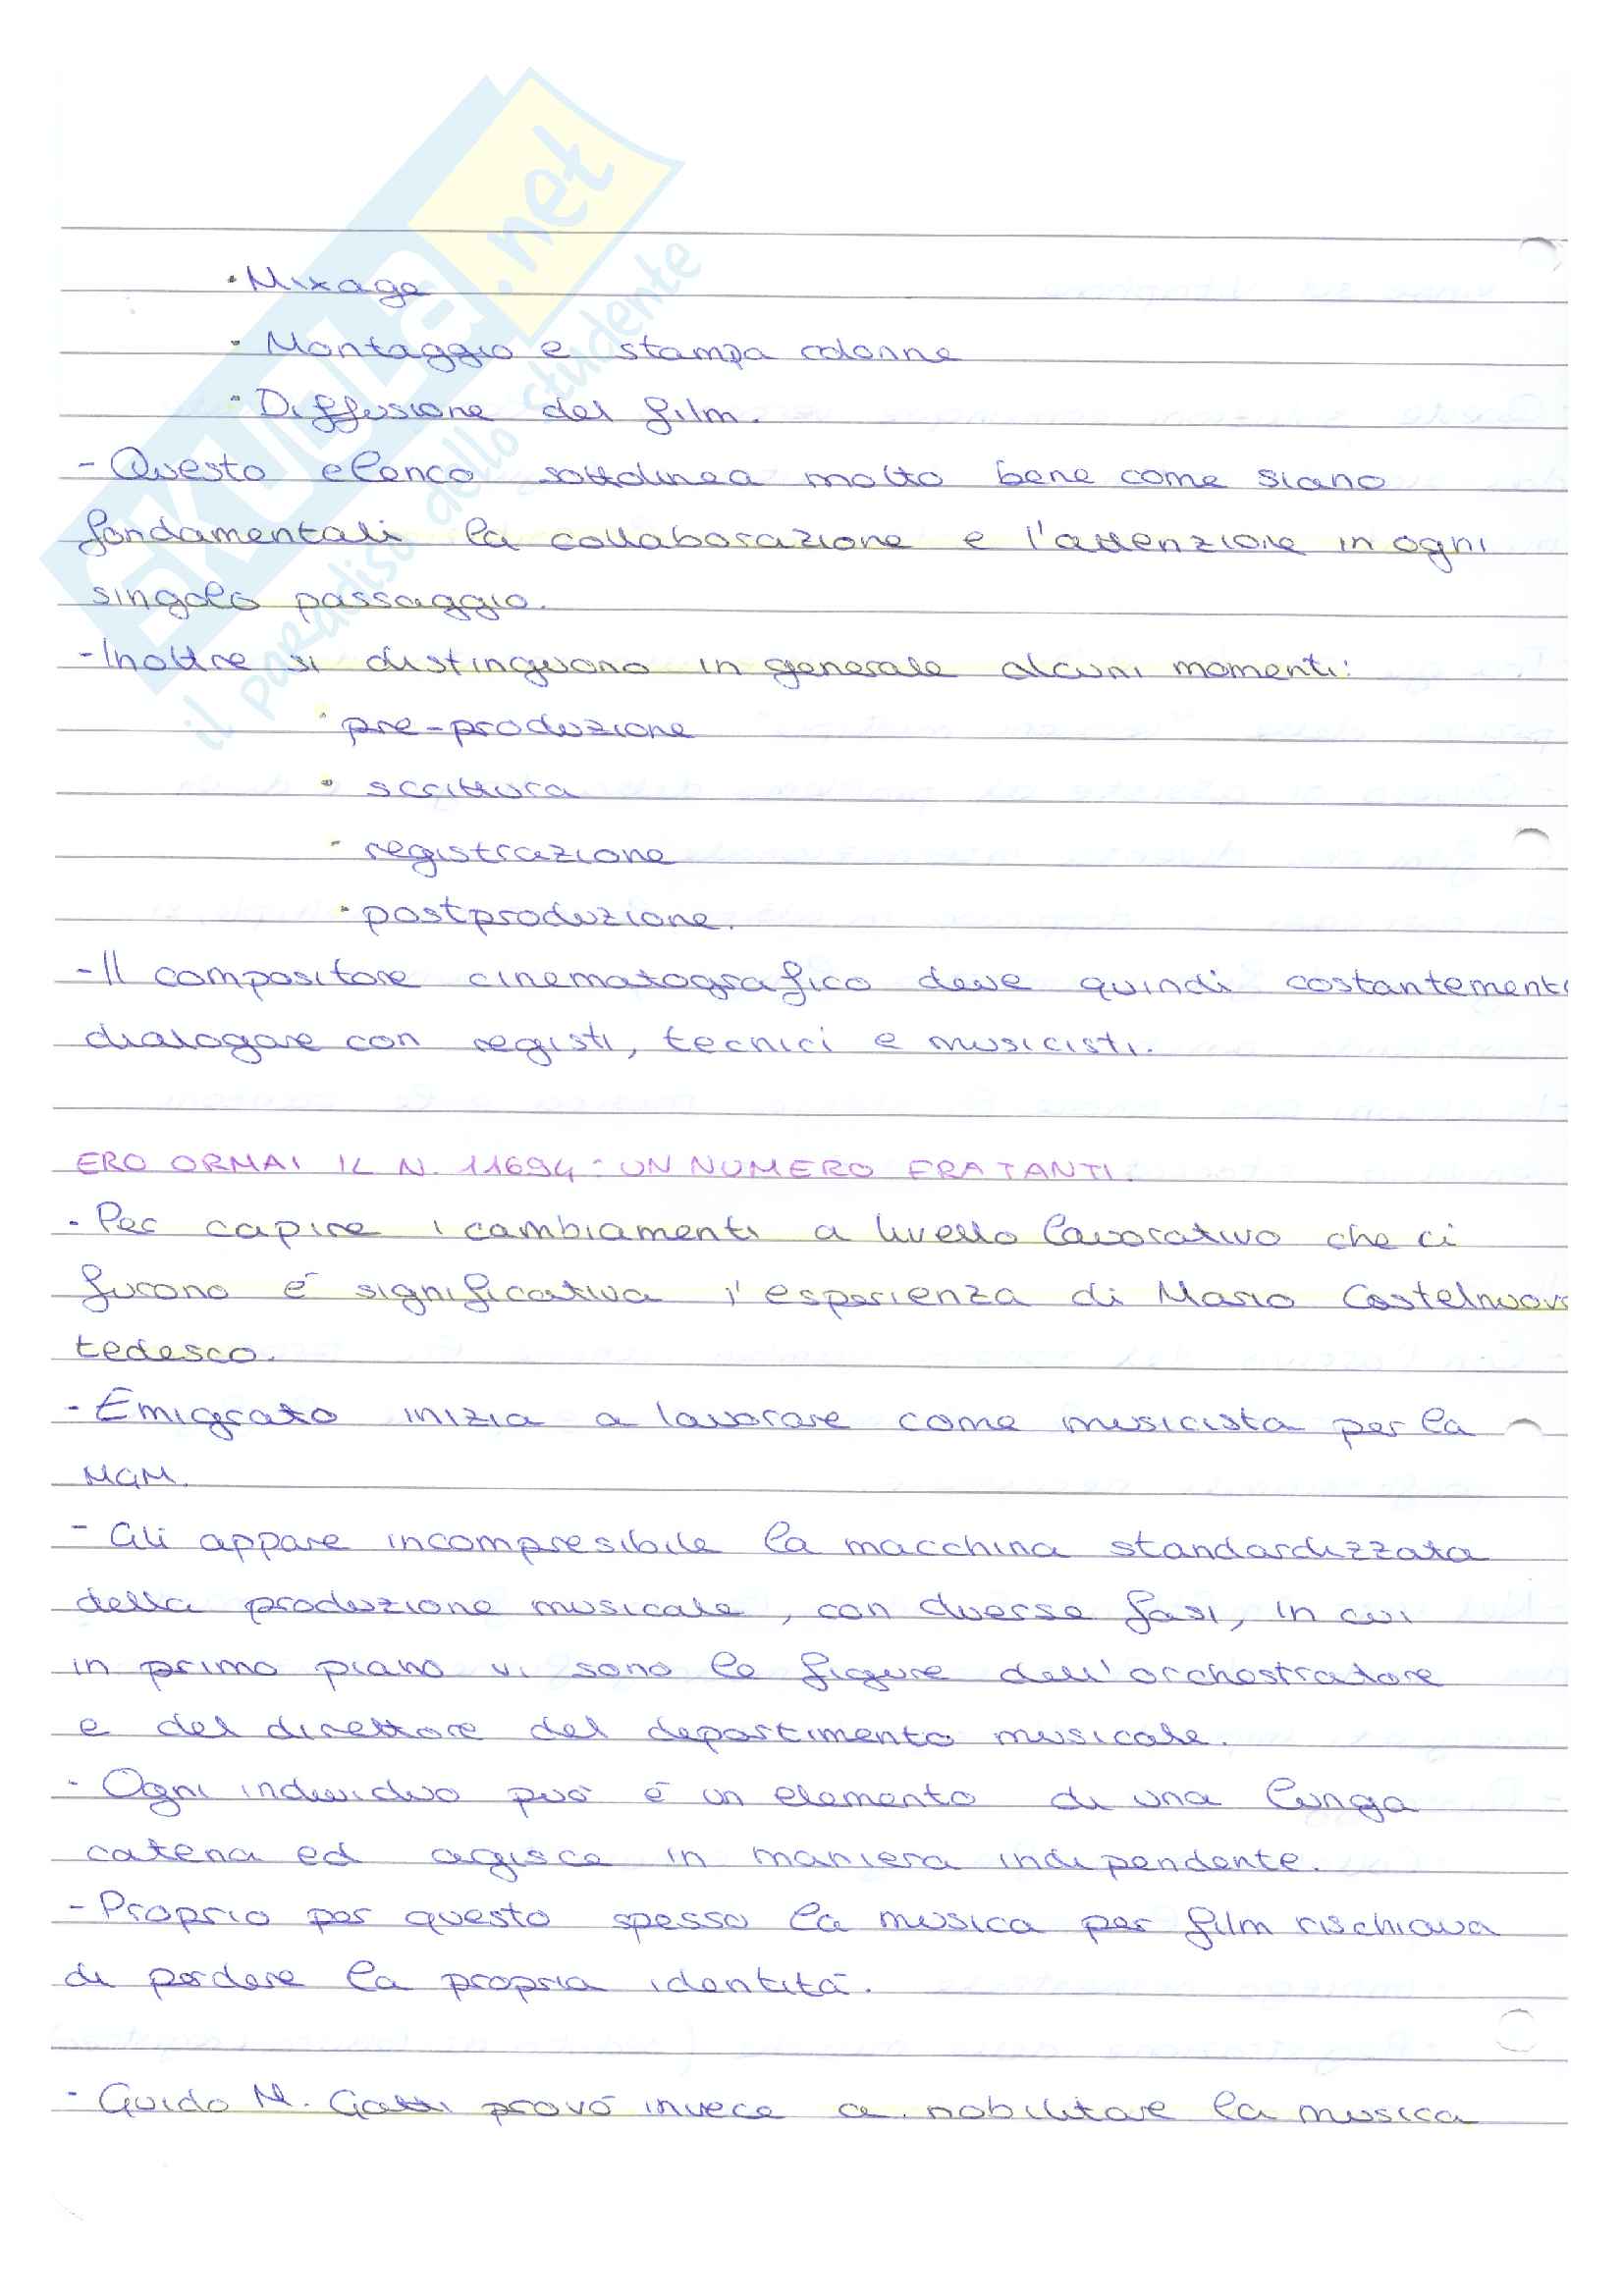 SKUOLA.net
il paradiso dello studente
• Mixage
• Montaggio e stampa colonne
• Diffusione del film.
- Questo elenco sottolinea molto bene come siano
fondamentali la collaborazione e l'attenzione in ogni
singolo passaggio.
- Inoltre si distinguono in generale alcuni momenti:
• pre-produzione
• scrittura
• registrazione
• postproduzione.
- Il compositore cinematografico deve quindi costantemente
dialogare con registi, tecnici e musicisti.
ERO ORMAI IL N. 11694: UN NUMERO FRA TANTI.
- Per capire i cambiamenti a livello lavorativo che ci
furono è significativa l'esperienza di Mario Castelnuovo
tedesco.
- Emigrato inizia a lavorare come musicista per la
MGM.
- Gli appare incompresibile la macchina standardizzata
della produzione musicale, con diverse fasi, in cui
in primo piano vi sono le figure dell'orchestratore
e del direttore del departimento musicale.
- Ogni individuo può è un elemento di una lunga
catena ed agisce in maniera indipendente.
- Proprio per questo spesso la musica per film rischiava
di perdere la propria identità.
- Guido M. Gatti provò invece a nobilitare la musica